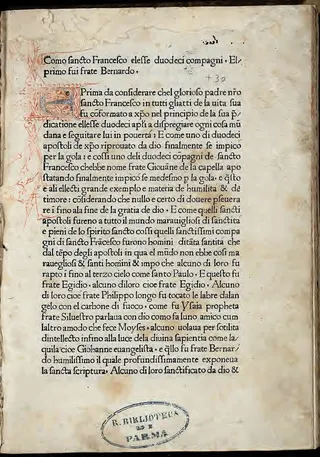 Como sancto Francesco elesse duodeci compagni. El
primo fui frate Bernardo.
+ 30
Prima da considerare chel glorioso padre nr̄o
sancto Francesco in tutti gli atti de la uita sua
fu cōformato a xp̄o nel principio de la sua p̄
dicatione ellesse duodeci apl̄i a dispregiare ogni cosa mū
dana e seguitare lui in pouerta. E come uno di duodeci
apostoli de xp̄o riprouato da dio finalmente se impico
per la gola: e cossi uno deli duodeci cōpagni de sancto
Francesco chebbe nome frate Giouāne de la capella apo
statando finalmente impico se medesmo p̄ la gola. e q̄sto
e ali ellecti grande exemplo e materia de humilita & de
timore: cōsiderando che nullo e certo di douere p̄seuera
re i fino ala fine de la gratia de dio. E come quelli sancti
apostoli fureno a tutto il mundo marauigliosi di sanctita
e pieni de lo spirito sancto cossi quelli sanctissimi compa
gni di sancto Frācesco furono homini ditāta santita che
dal tēpo degli apostoli in qua el mūdo non ebbe cosi ma
rauegliosi & santi homini & impo che alcuno di loro fu
rapto i fino al terzo cielo come santo Paulo. E questo fu
frate Egidio. alcuno di loro cioe frate Egidio. Alcuno
di loro cioe frate Philippo longo fu tocato le labre dalan
gelo con el carbone di fuoco. come fu Ysaia propheta
frate Siluestro parlaua con dio como fa luno amico cum
laltro amodo che fece Moyses. alcuno uolaua per sotilita
dintellecto infino alla luce dela diuina sapientia come la
quila cioe Giohanne euangelista. e q̄llo fu frate Bernar
do humilissimo il quale profundissimamente exponeua
la sancta scriptura. Alcuno di loro sanctificato da dio &
R. BIBLIOTECA
DI
PARMA